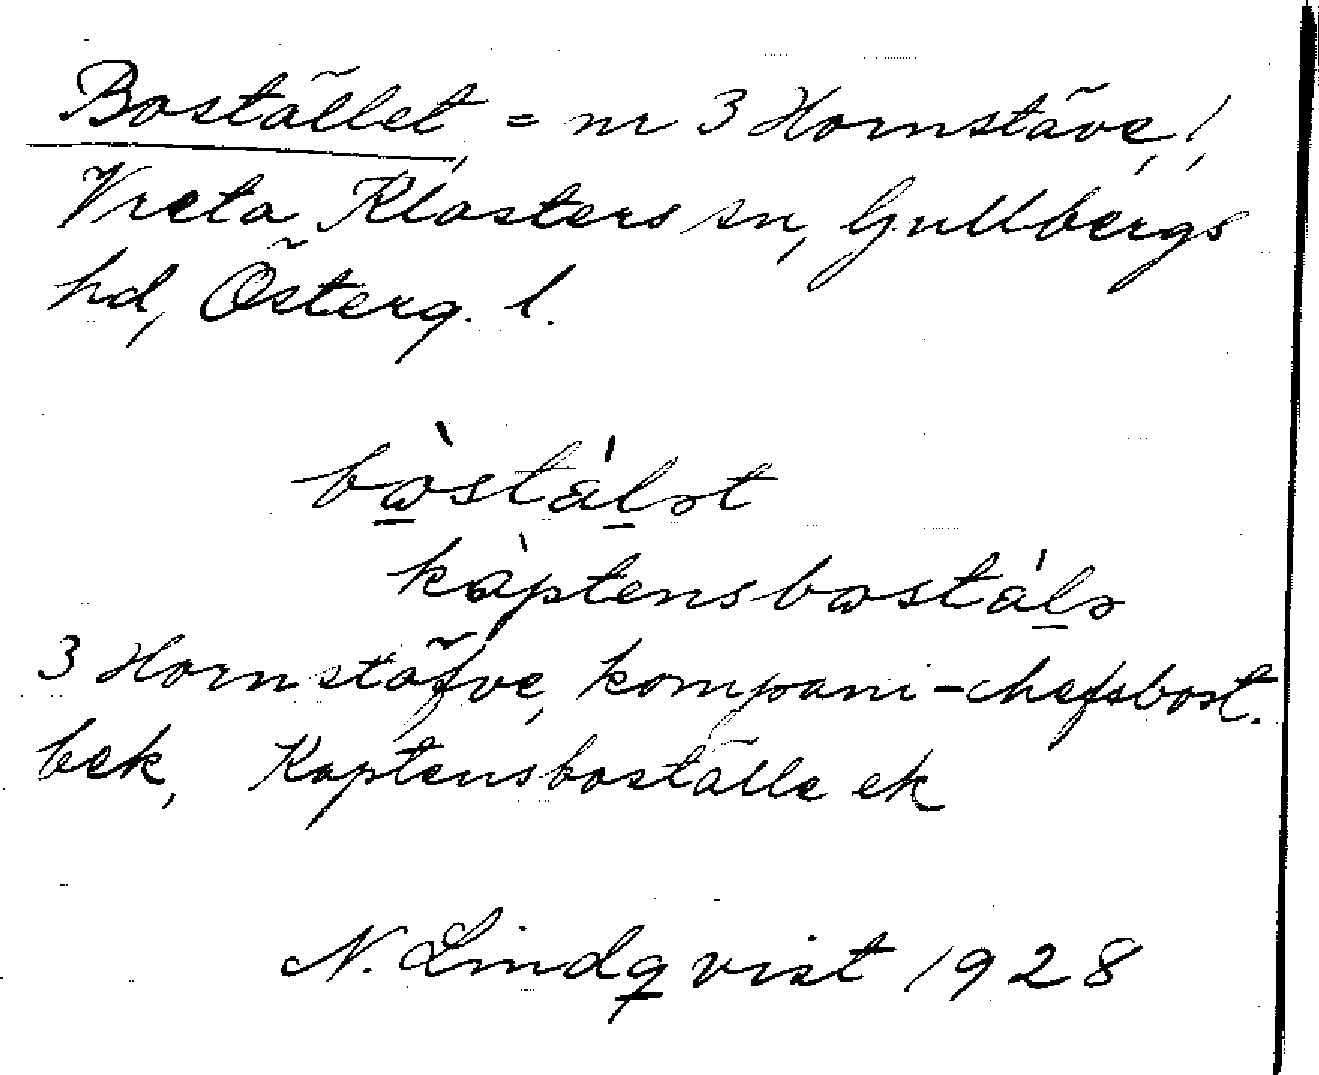 Bostället = nr 3 Hornstäve,!
Vreta Klosters sn, Gullbergs
hd, Österg. l.
bo̱stäḻət
kaptensbostäḻə
3 Hornstäfve, kompani-chefsbost.
bek, Kaptensboställe ek
N. Lindqvist 1928